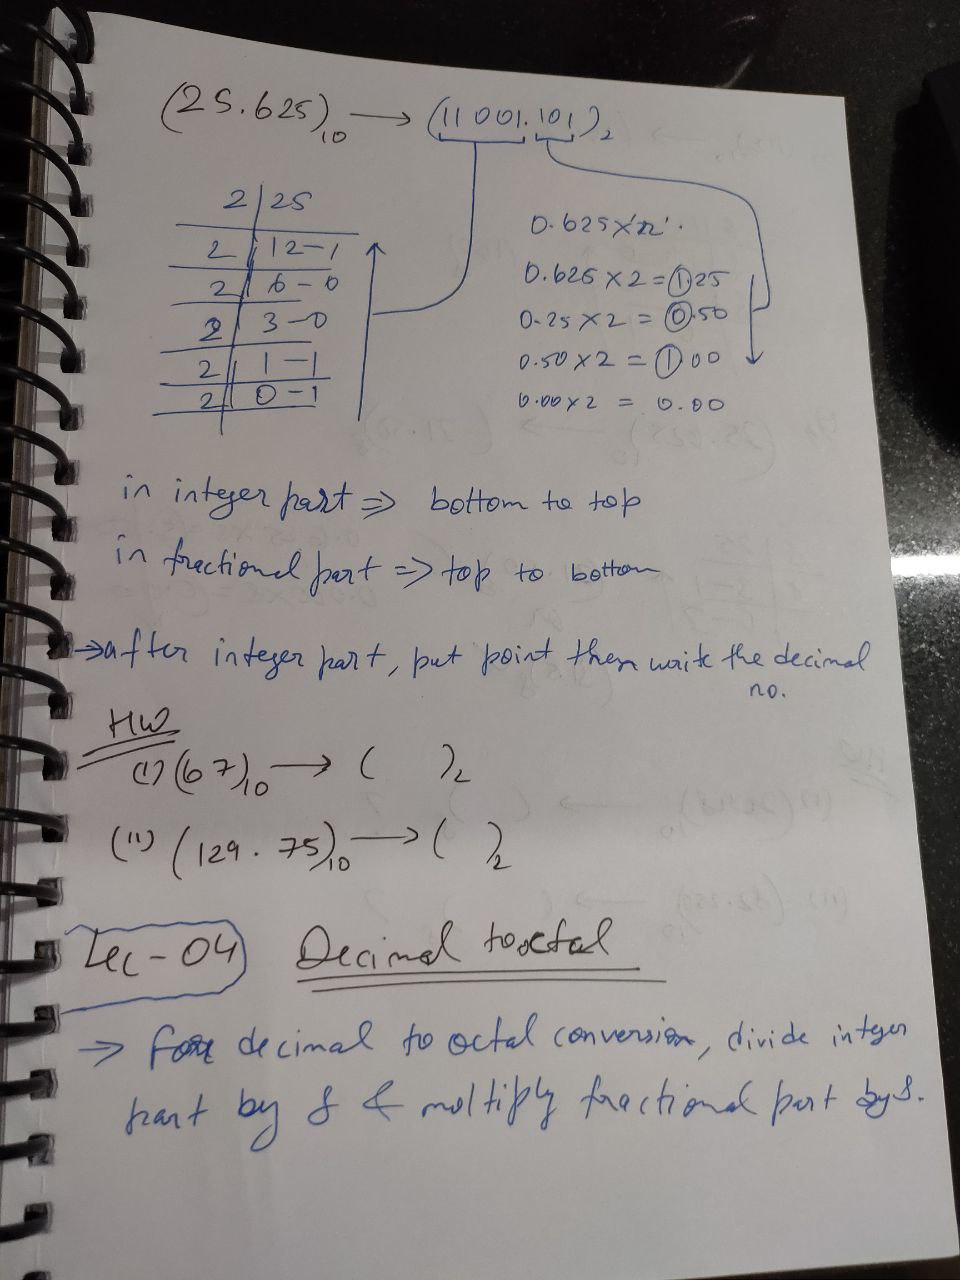 (25.625)10 → (11001.101)2
2 | 25
2 | 12-1
2 | 6-0
2 | 3-0
2 | 1-1
2 | 0-1
0.625×2
0.625×2=1.25
0.25×2=0.50
0.50×2=1.00
0.00×2=0.00
in integer part ⇒ bottom to top
in fractional part ⇒ top to bottom
→after integer part, put point then write the decimal
no.
HW
(i) (67)10 → ( )2
(ii) (129.75)10 → ( )2
Lec-04 Decimal to octal
→ For decimal to octal conversion, divide integer
part by 8 & moltiply fractional part by 8.